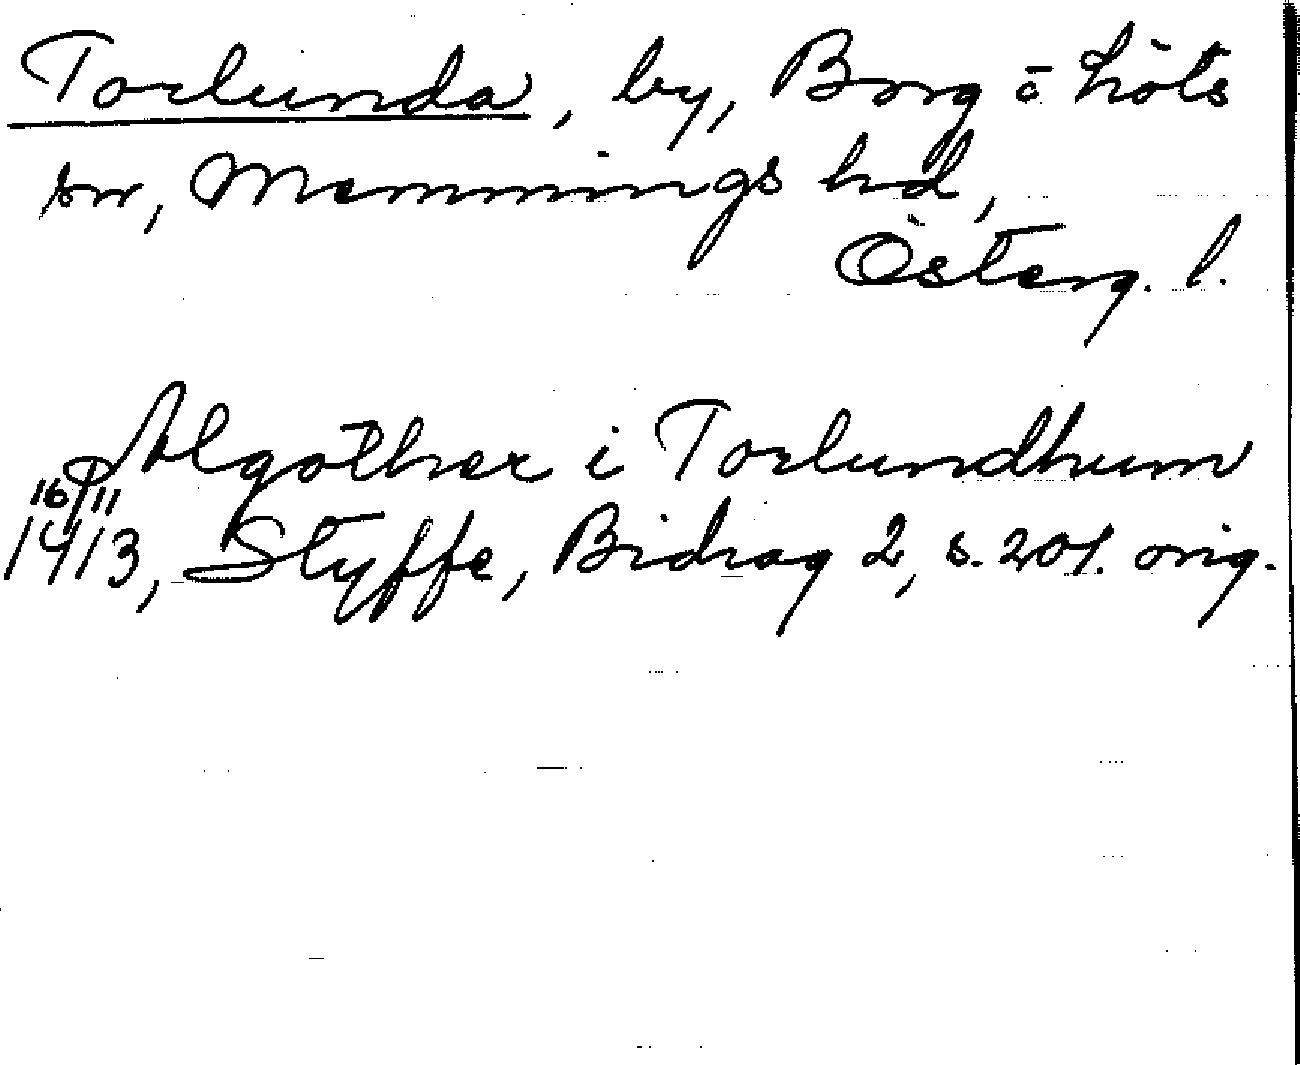 Torlunda, by, Borg o Löts
sn, Memmings hd,
Österg. l.
Algother i Torlundhum
16/11
1413, Styffe, Bidrag 2, s. 201. orig.